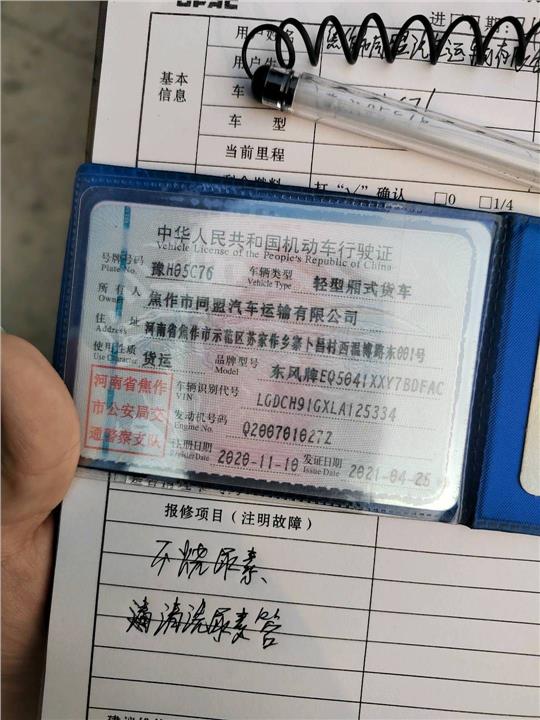 DFAC
进
日期
用户姓名
基本
信息
车
车 型
当前里程
打“√”确认 □0 □1/4
中华人民共和国机动车行驶证
Vehicle License of the People's Republic of China
号牌号码 豫H05C76 车辆类型 轻型厢式货车
Plate No. Vehicle Type
所有人 焦作市同盟汽车运输有限公司
Owner
住址 河南省焦作市示范区苏家作乡寨卜昌村西温博路东001号
Address
使用性质 货运 品牌型号 东风牌EQ5041XXY7BDFAC
Use Character Model
河南省焦作
市公安局交
通警察支队
车辆识别代号 LGDCH91GXLA125334
VIN
发动机号码 Q200701027Z
Engine No.
注册日期 2020-11-10 发证日期 2021-04-25
Register Date Issue Date
报修项目（注明故障）
不烧尿素、
清洗尿素管